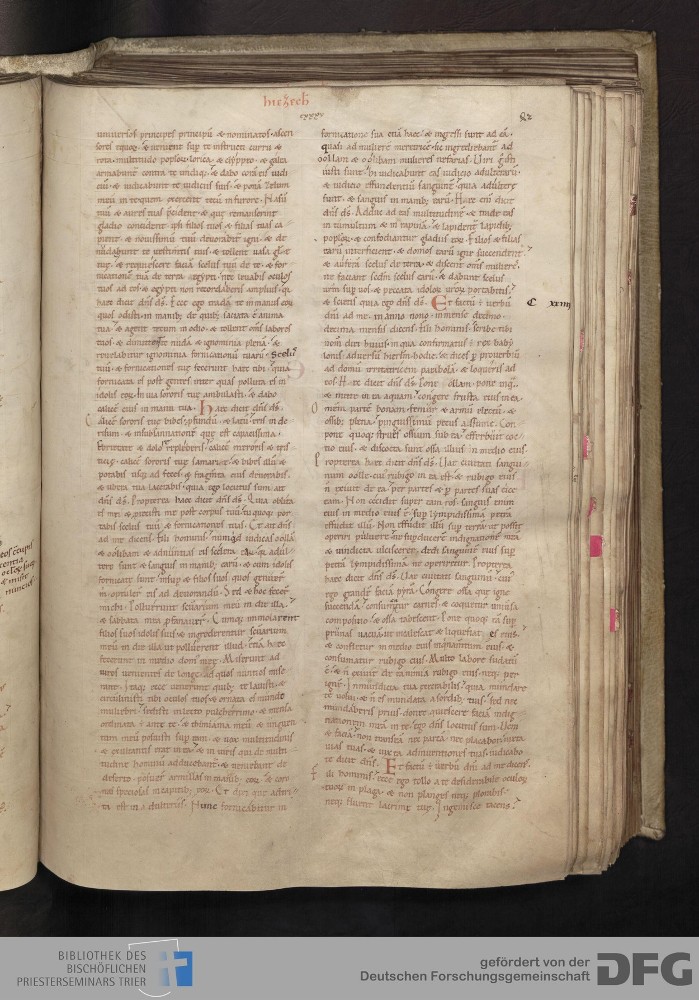 hiezech
universos principes principũ & nominatos. ascen
sores equoꝝ. & venient sup te instructi curru &
rota. multitudo popłoꝝ. lorica. & clyppeo. & galea
armabunt contra te undiq;. & dabo corã eis iudi
ciũ. & iudicabunt te iudiciis suis. & ponã zelum
meũ in te quem exercent tecũ in furore. Nasũ
tuũ & aures tuas p̃cident. & que remanserint
gladio concident. ipsi filios tuos & filias tuas ca
pient. & novissimũ tuũ devorabit igni. & de
nudabunt te vestimtis tuis. & tollent vasa glę
tuę. & requiescere faciã scelus tuũ de te. & for
nicationẽ tuã de terra egypti. nec levabis oculos
tuos ad eos. & egypti non recordaberis amplius. q̃a
hæc dicit dñs ds. Ecce ego tradã te in manus eoꝝ
quos odisti. in manib; de quib; saciata ẽ anima
tua. & agent tecum in odio. & tollent oms labores
tuos. & dimittent te nudã & ignominia plenã. &
revelabitur ignominia fornicationũ tuarũ. scelus
tuũ & fornicationes tuę fecerunt hæc tibi. quia
fornicata es post gentes inter quas polluta es in
idolis eoꝝ. In via sororis tuę ambulasti. & dabo
calicẽ eius in manu tua. Hæc dicit dñs ds.
Calicẽ sororis tuę bibes. p̃fundũ & latũ. eris in de
risum. & in subsannationẽ. quę est capacissima.
Ebrietate & dolore repleberis. calice meroris & tris
ticię. calice sororis tuę samarię. & bibes illũ &
potabis usq; ad feces. & fragmta eius devorabis.
& ubera tua lacerabis. quia ego locutus sum. ait
dñs ds. Propterea hæc dicit dñs ds. Quia oblita
es mei. & proiecisti me post corpus tuũ. tu quoq; por
ta scelus tuũ & fornicationes tuas. Et ait dñs
ad me dicens. Fili hominis numq̃d iudicas oollã
& oolibam & adnuntias eis scelera earũ. quia adul
teratę sunt & sanguis in manib; earũ. & cum idolis
fornicatę sunt. insup & filios suos quos genuert̃
m̃ optulert̃ eis ad devorandũ. Sed & hoc fecert̃
michi. Pollverunt scũarium meũ in die illa.
& sabbata mea p̃fanavert̃. Cumq; immolarent
filios suos idolis suis & ingrederentur scũarium
meũ in die illa ut polluerent illud. etiã hæc
fecerunt in medio dom̃ meę. Miserunt ad
viros venientes de longe. ad quos nuntios mise
rant. Itaq; ecce venerunt. quib; te lavisti. &
circũlinisti tibi oculos tuos. & ornata es mundo
muliebri. sedisti in lecto pulcherrimo. & mensa
ordinata ẽ ante te. & thimiama meũ & unguen
tum meũ posuisti sup eam. & vox multitudinis
& exultantis erat in ea. & in viris qui de multi
tudine hominũ adducebant̃. & veniebant de
deserto. posuer̃ armillas in manib; eoꝝ. & coro
nas speciosas in capitib; eoꝝ. Et dixi ei quę adtri
ta est in adulteriis. Nunc fornicabitur in
fornicatione sua etiã hæc. & ingressi sunt ad eã.
quasi ad mulierẽ meretricẽ. sic ingrediebant̃ ad
oollam & oolibam mulieres nefarias. Viri g̃ qui
iusti sunt. hi iudicabunt eas iudicio adulterarũ.
& iudicio effundentiũ sanguinẽ. quia adulterę
sunt. & sanguis in manib; earũ. Hæc enĩ dicit
dñs ds. Adduc ad eas multitudinẽ. & trade eas
in tumultum & in rapinã. & lapident̃ lapidib;
popłoꝝ. & confodiantur gladiis eoꝝ. Filios & filias
earũ interficient. & domos earũ igne succendent.
& auferã scelus de terra. & discent oms mulieres
ne faciant scdm̃ scelus earũ. & dabunt scelus
vrm̃ sup vos. & peccata idoloꝝ vr̃oꝝ portabitis.
& scietis quia ego dñs ds. Et factũ ẽ verbũ
C xxiiii
dñi ad me. in anno nono. in mense decimo.
decima mensis dicens. Fili hominis. scribe tibi
nom̃ diei huius in qua confirmatus ẽ rex baby
lonis adversũ hierłm hodie. & dices p̃ proverbiũ
ad domũ irritatricem parabolã. & loqueris ad
eos. Hæc dicit dñs ds. Pone ollam. pone inq̃.
& mitte in ea aquam. congere frusta eius in ea.
omnem partẽ bonam. femur & armũ. electa &
ossib; plena. pinguissimũ pecus assume. Com
pone quoq; strues ossium sub ea. efferbuit coc
tio eius. & discocta sunt ossa illius in medio eius.
Propterea hæc dicit dñs ds. Vae civitati sangui
num. ollę cui rubigo in ea est. & rubigo eius
ñ exivit de ea. per partes & p̃ partes suas eice
eam. Non cecidit super eam sors. sanguis enim
eius in medio eius ẽ. sup lympidissimã petrã
effudit illũ. Non effudit illũ sup terrã. ut possit
operiri pulvere. ut supducerẽ indignationẽ meã
& vindicta ulciscerer. dedi sanguinẽ eius sup
petrã lympidissimã ne operiretur. Propterea
hæc dicit dñs ds. Vae civitati sanguinũ. cui
ego grandẽ faciã pyrã. Congere ossa que igne
succendã. consumentur carnes. & coquetur uniṽsa
compositio. & ossa tabescent. Pone quoq; eã sup
prunas vacuã. ut incalescat & liquefiat ęs eius.
& confletur in medio eius inquinmtum eius. &
consumatur rubigo eius. Multo labore sudatũ
ẽ. & ñ exivit de ea nimia rubigo eius. neq; per
ignẽ. Inmunditia tua execrabilis. quia mundare
te volui. & ñ es mundata a sordib; tuis. sed nec
mundaberis prius. donec quiescere faciã indig
nationem meã in te. ego dñs locutus sum. Veni
& faciã. non transeã. nec parcã. nec placabor. iuxta
vias tuas. & iuxta adinventiones tuas. iudicabo
te dicit dñs. Et factũ ẽ verbũ dñi ad me dicens.
Fili hominis. ecce ego tollo a te desiderabile oculoꝝ
tuoꝝ in plaga. & non planges neq; plorabis.
neq; fluent lacrimę tuę. Ingemisce tacens.
BIBLIOTHEK DES
BISCHÖFLICHEN
PRIESTERSEMINARS TRIER
gefördert von der
Deutschen Forschungsgemeinschaft
DFG